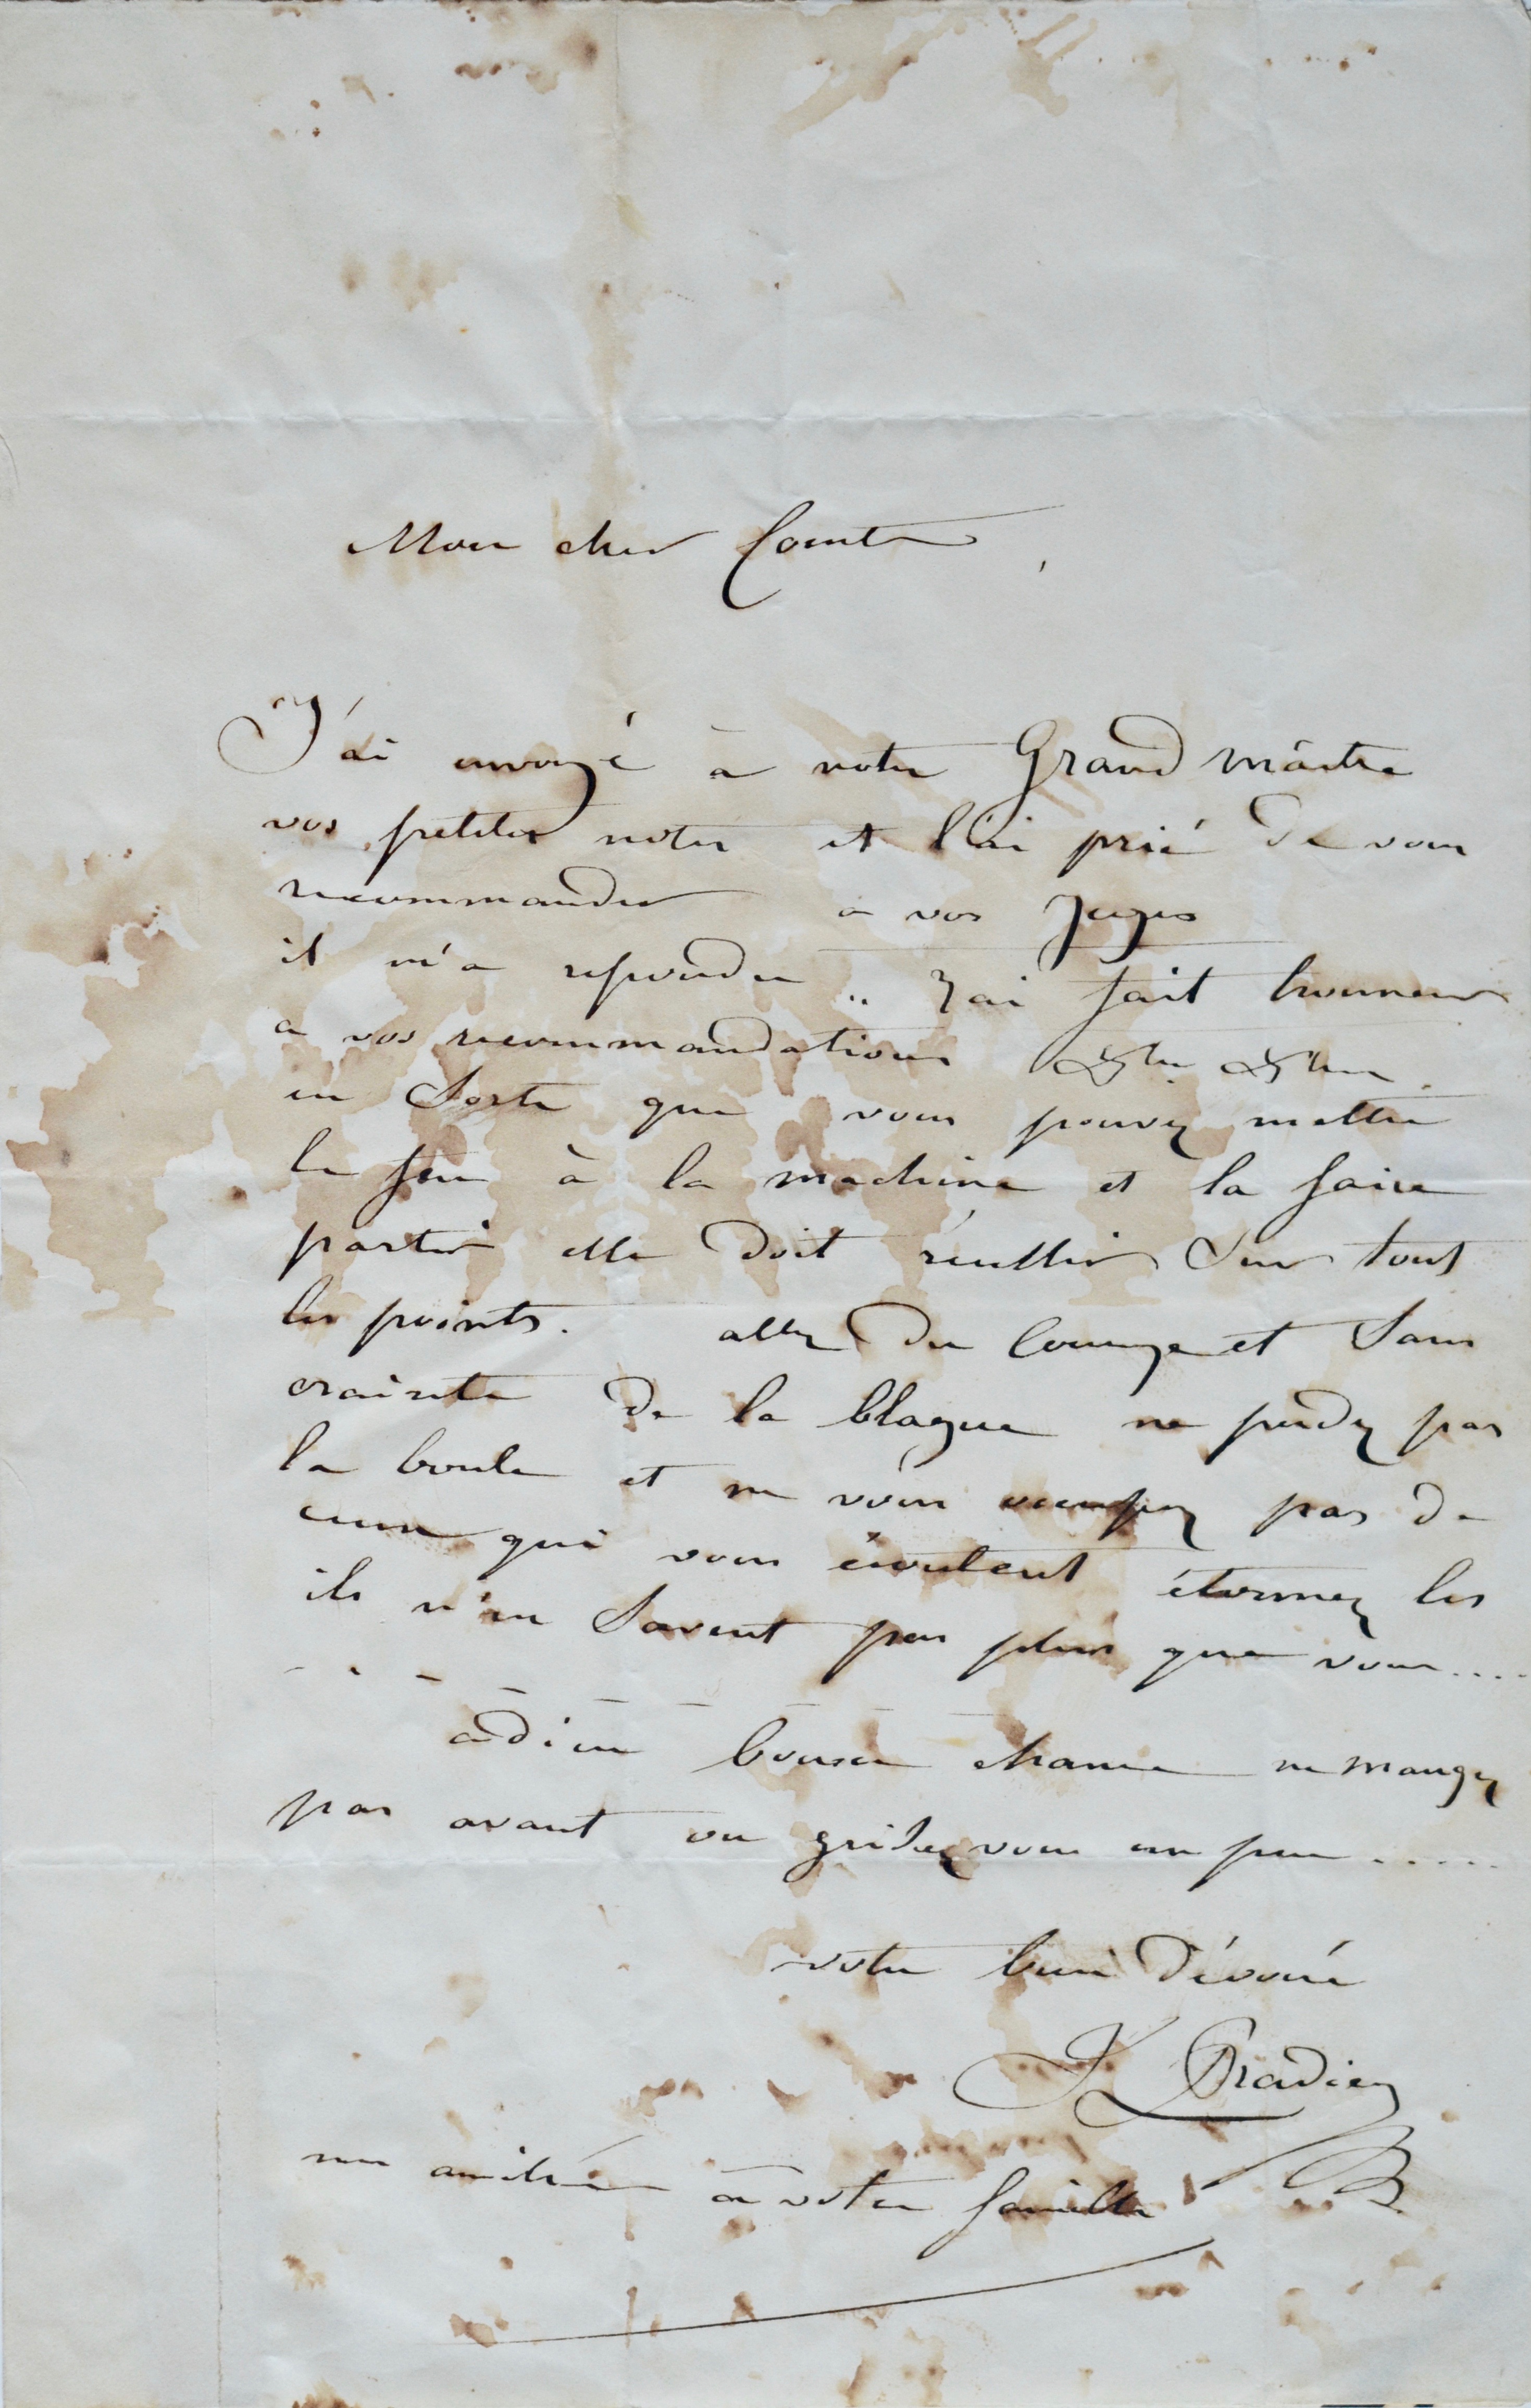 Mon cher Comte,
J'ai envoyé à notre Grand maître
vos petites notes et l'ai prié de vous
recommander a vos Juges
il m'a repondu .. J'ai fait honneur
a vos recommandations &c &c.
en Sorte que vous pouvez mettre
le feu à la machine et la faire
partir elle doit réussir Sur tous
les points. allez du courage et Sans
crainte de la blague ne perdez pas
la boule et ne vous occupez pas de
ceux qui vous écoutent étonnez les
ils n'en Savent pas plus que vous....
adieu bonne chance ne mangez
pas avant ou grisez vous un peu .....
votre bien dévoué
J Pradier
mes amitiés à votre famille